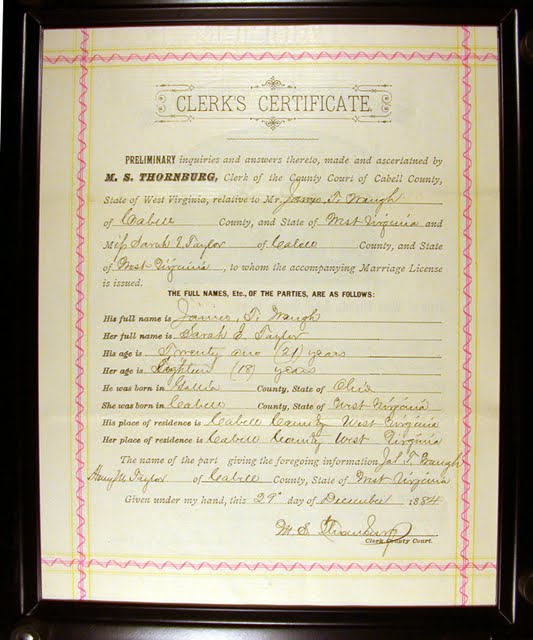 CLERK'S CERTIFICATE.
PRELIMINARY inquiries and answers thereto, made and ascertained by
M. S. THORNBURG, Clerk of the County Court of Cabell County,
State of West Virginia, relative to Mr. James T. Waugh
of Cabell County, and State of West Virginia and
Miss Sarah E. Taylor of Cabell County, and State
of West Virginia, to whom the accompanying Marriage License
is issued.
THE FULL NAMES, Etc., OF THE PARTIES, ARE AS FOLLOWS:
His full name is James T. Waugh
Her full name is Sarah E. Taylor
His age is Twenty one (21) years
Her age is Eighteen (18) years
He was born in Gallia County, State of Ohio
She was born in Cabell County, State of West Virginia
His place of residence is Cabell County West Virginia
Her place of residence is Cabell County West Virginia
The name of the part giving the foregoing information Jas T. Waugh
Taylor of Cabell County, State of West Virginia
Given under my hand, this 29" day of December 1884
M. S. Thornburg
Clerk County Court.